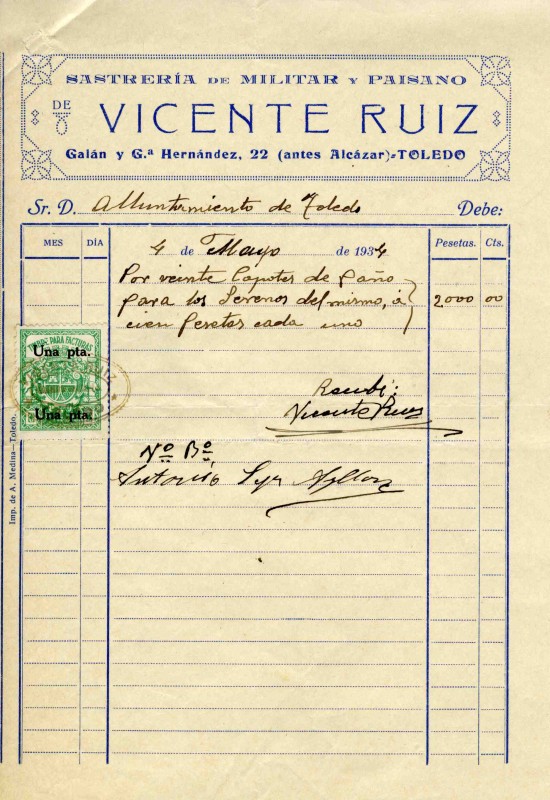 SASTRERÍA DE MILITAR Y PAISANO
DE
VICENTE RUIZ
Galán y G.ª Hernández, 22 (antes Alcázar)-TOLEDO
Sr. D. Ayuntamiento de Toledo Debe:
MES DÍA Pesetas. Cts.
4 de Mayo de 1934
Por veinte Capotes de paño
para los Serenos del mismo, á 2000 00
cien pesetas cada uno
TIMBRE PARA FACTURAS
Una pta.
Una pta.
Recibí:
Vicente Ruiz
Vº Bº
Antonio
Imp. de A. Medina—Toledo.